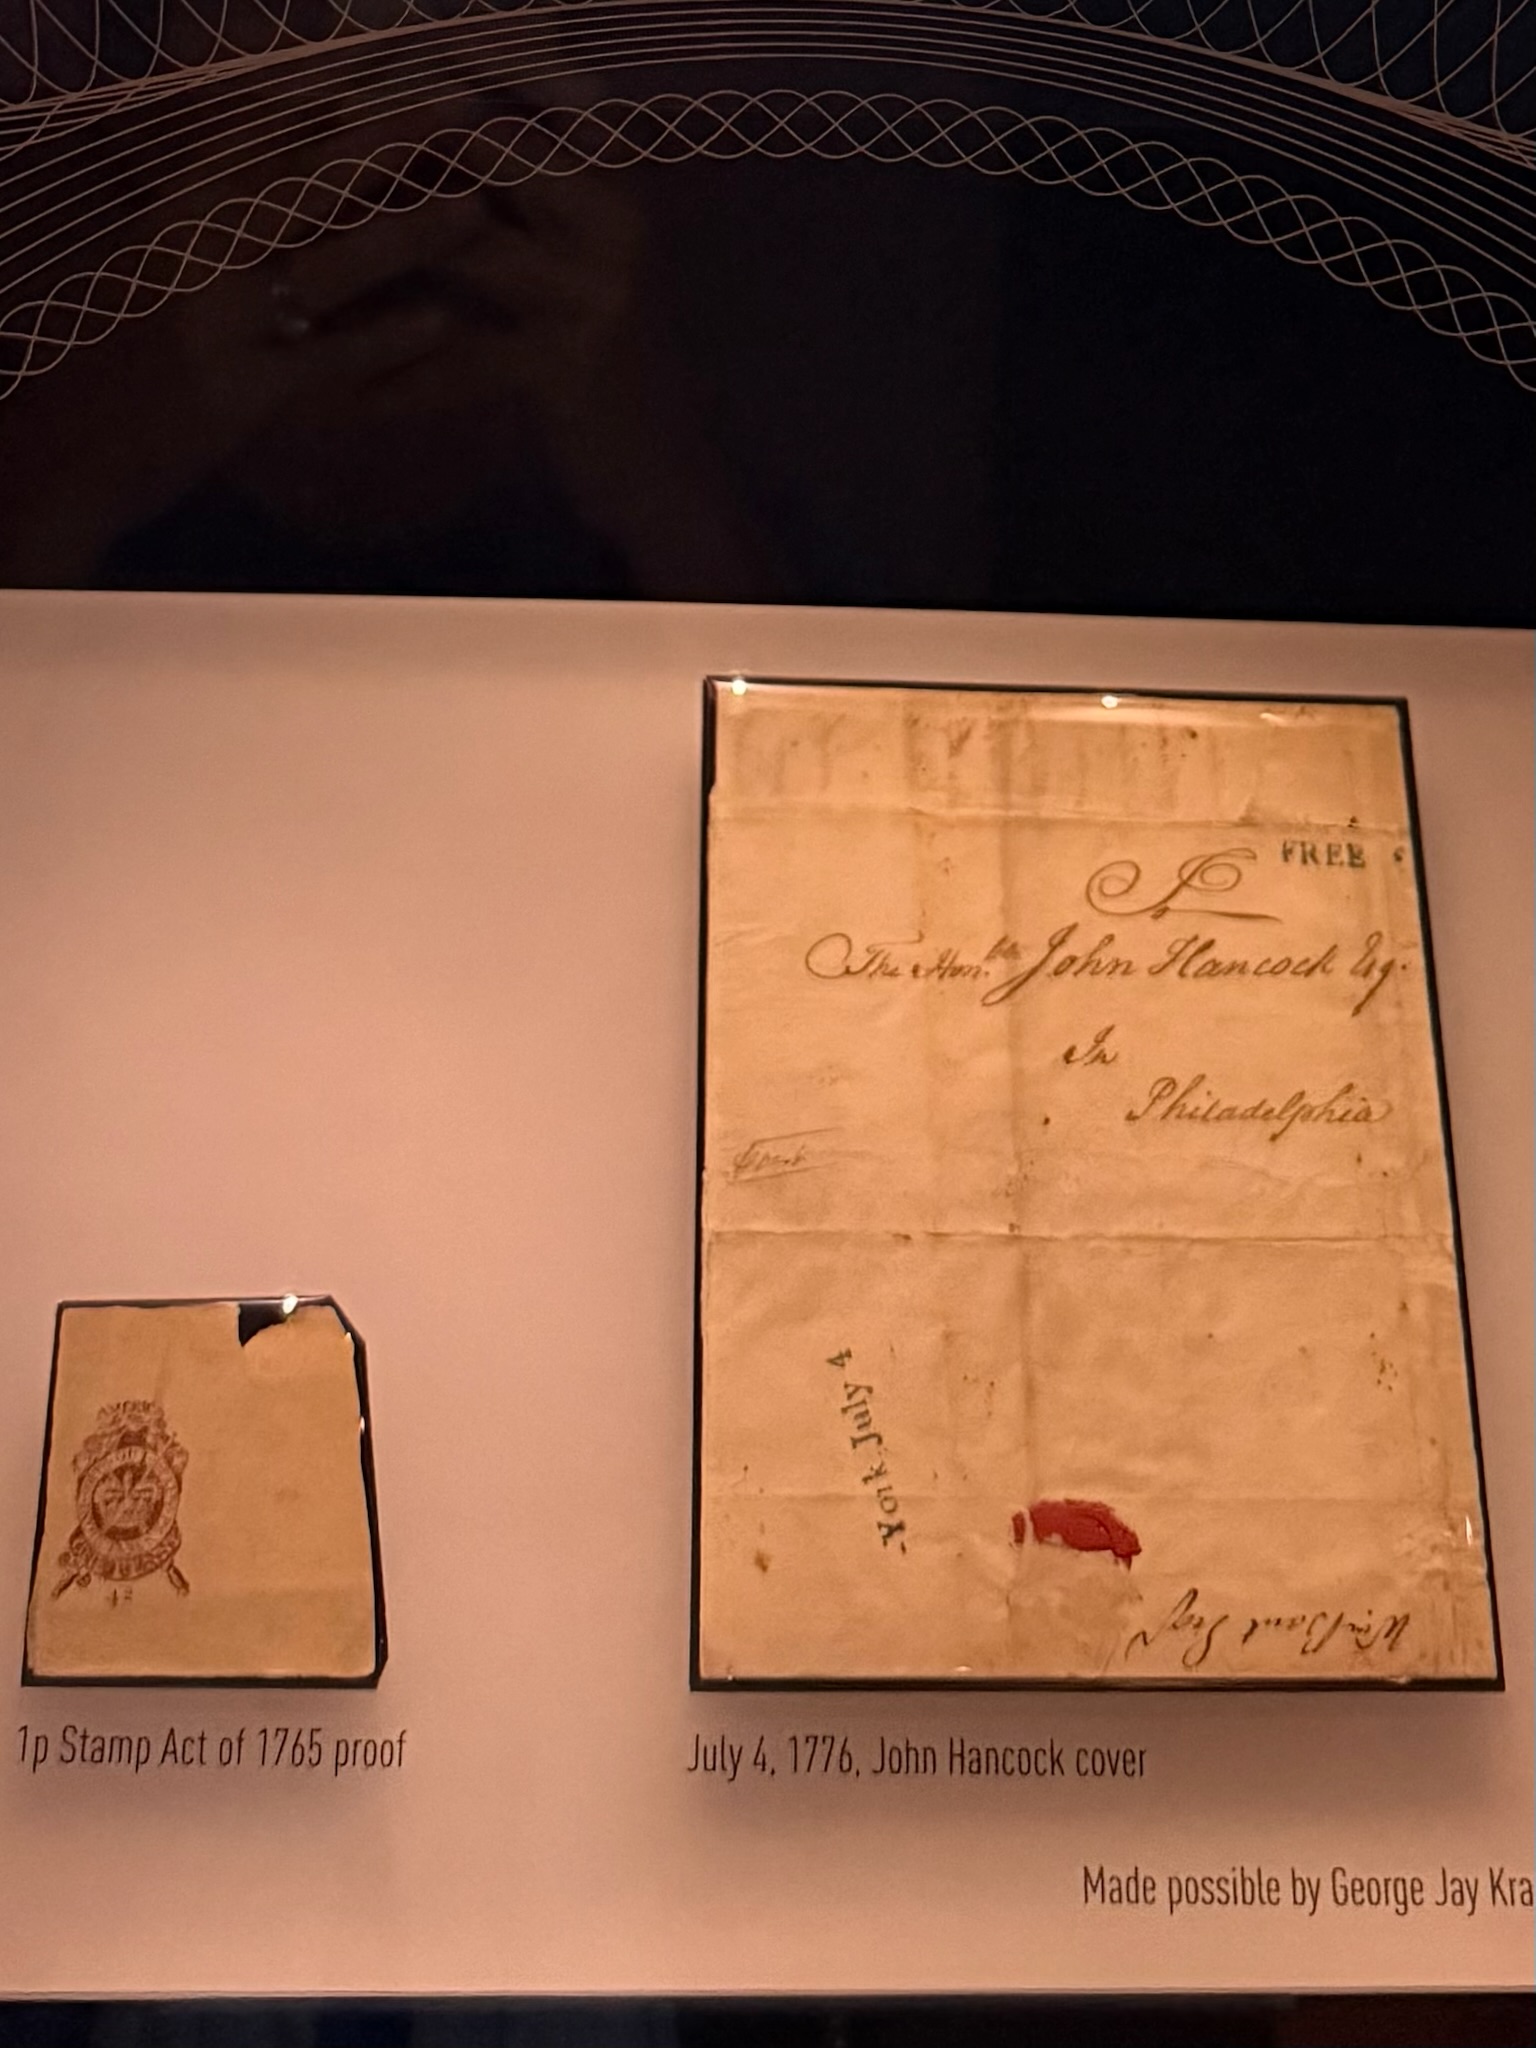 FREE
To
The Hon.ble John Hancock Esq.
In
Philadelphia
York July 4
42
1p Stamp Act of 1765 proof
July 4, 1776, John Hancock cover
Made possible by George Jay Kra